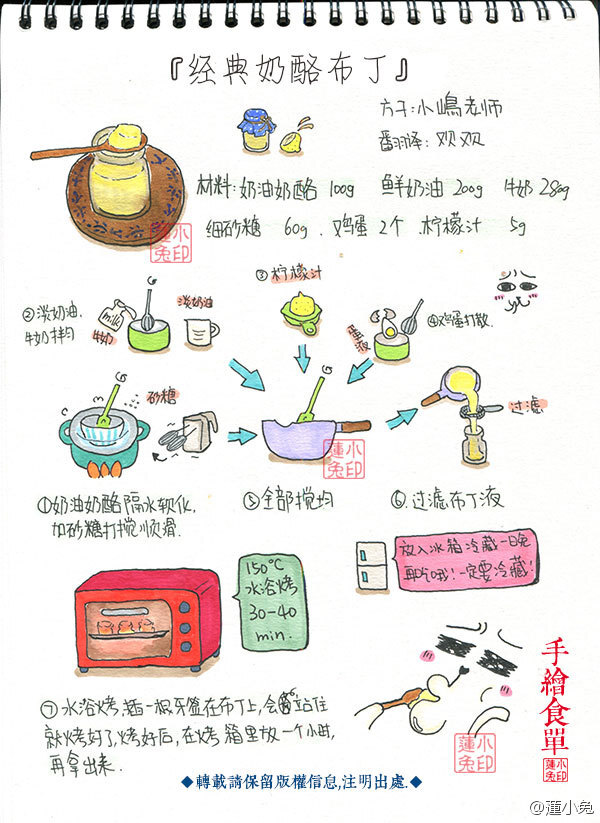 『经典奶酪布丁』
方子:小嶋老师
翻译:欢欢
材料:奶油奶酪 100g 鲜奶油 200g 牛奶 280g
细砂糖 60g、鸡蛋 2个 柠檬汁 5g
蓮小兔印
②淡奶油、
牛奶拌匀
milk
牛奶
淡奶油
③柠檬汁
蛋液
④鸡蛋打散
砂糖
过滤
蓮小兔印
①奶油奶酪隔水软化,
加砂糖打搅顺滑.
⑤全部搅匀
⑥过滤布丁液
150℃
水浴烤
30-40
min.
放入冰箱冷藏一晚
再吃哦!一定要冷藏!
⑦水浴烤,插一根牙签在布丁上,会站住
就烤好了,烤好后,在烤箱里放一个小时,
再拿出来.
手繪食單
蓮小兔印
蓮小兔印
◆轉載請保留版權信息,注明出處.◆
@蓮小兔